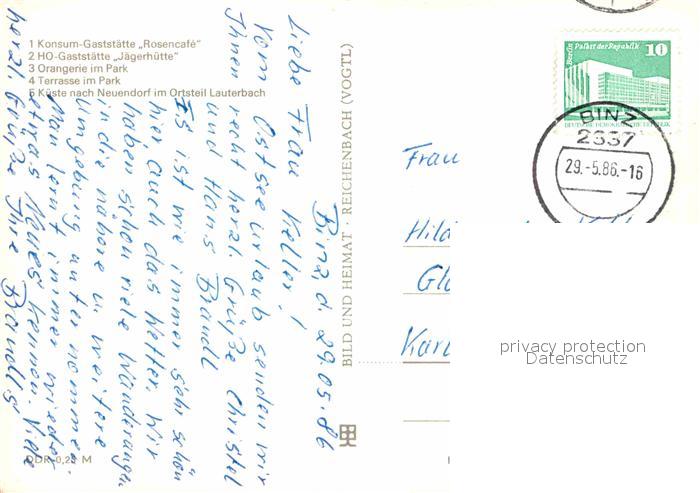 1 Konsum-Gaststätte „Rosencafé"
2 HO-Gaststätte „Jägerhütte"
3 Orangerie im Park
4 Terrasse im Park
5 Küste nach Neuendorf im Ortsteil Lauterbach
Binz d. 29.05.86
Liebe Frau Keller!
Vom Ostseeurlaub senden wir
Ihnen recht herzl. Grüße Christel
und Hans Brandl
Es ist wie immer sehr schön
hier auch das Wetter. Wir
haben schon viele Wanderungen
in die nähere u. weitere
Umgebung unternommen.
Man lernt immer wieder
etwas Neues kennen. Viele
herzl. Grüße Ihre Brandls
DDR 0,25 M
BILD UND HEIMAT · REICHENBACH (VOGTL)
Berlin Palast der Republik 10
DEUTSCHE DEMOKRATISCHE REPUBLIK
BINZ
2337
29.-5.86.-16
Frau
Hild
Gl
Karl
privacy protection
Datenschutz